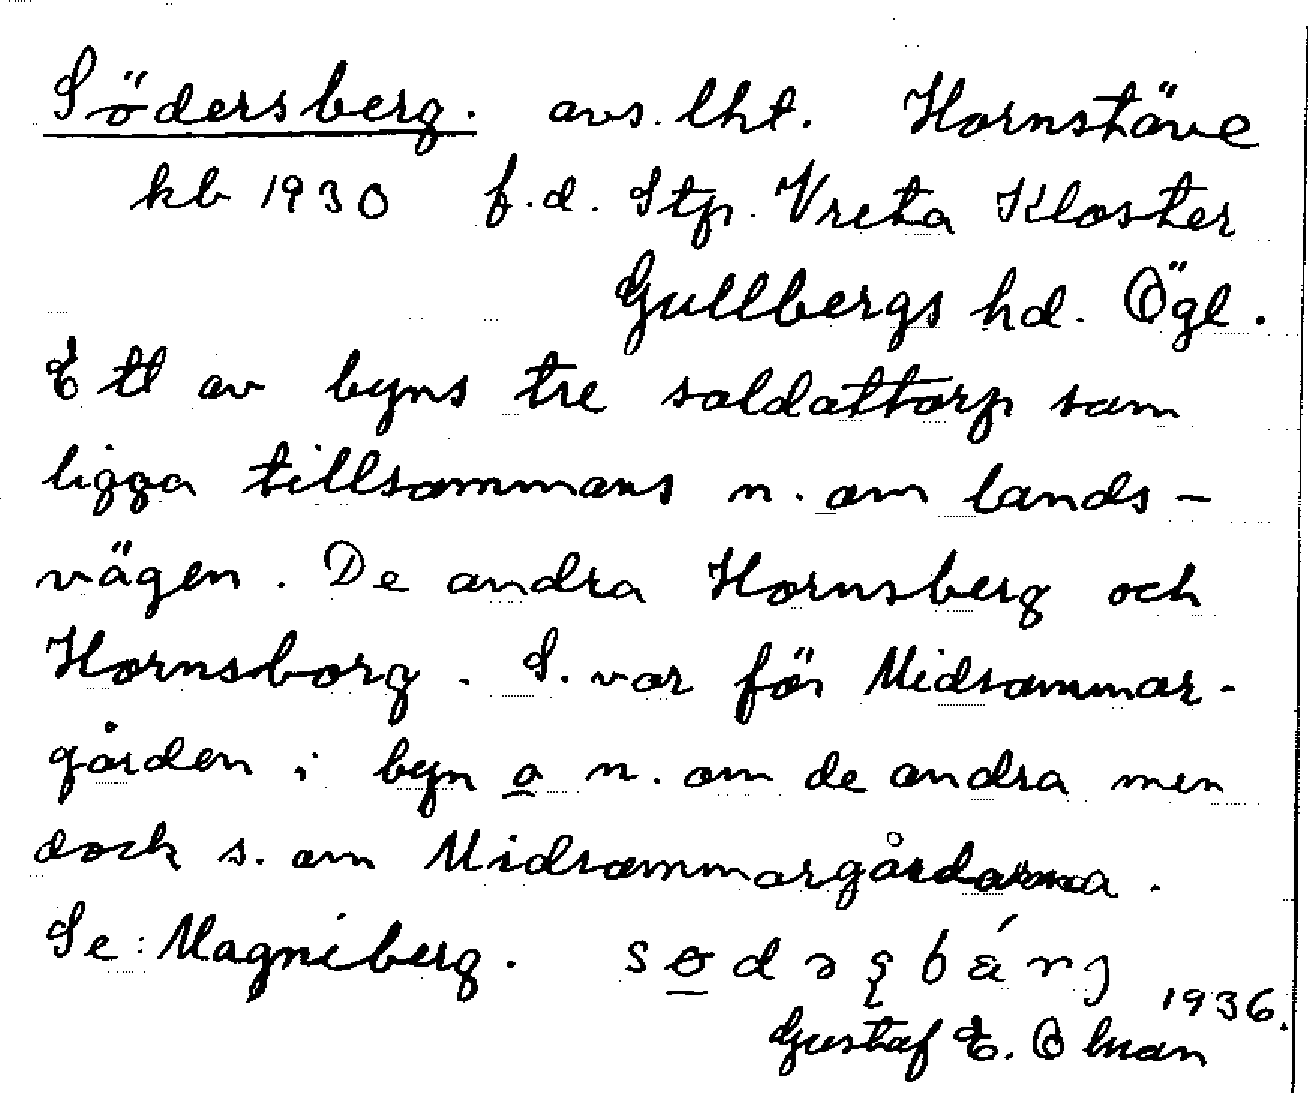 Södersberg. avs. lht. Hornstäve
kb 1930 f.d. Stp. Vreta Kloster
Gullbergs hd. Ögl.
Ett av byns tre soldattorp som
ligga tillsammans n. om lands-
vägen. De andra Hornsberg och
Hornsborg. S. var för Midsommar-
gården i byn o n. om de andra men
dock s. om Midsommargårdarna.
Se: Magneberg.
1936.
Gustaf E. Olman